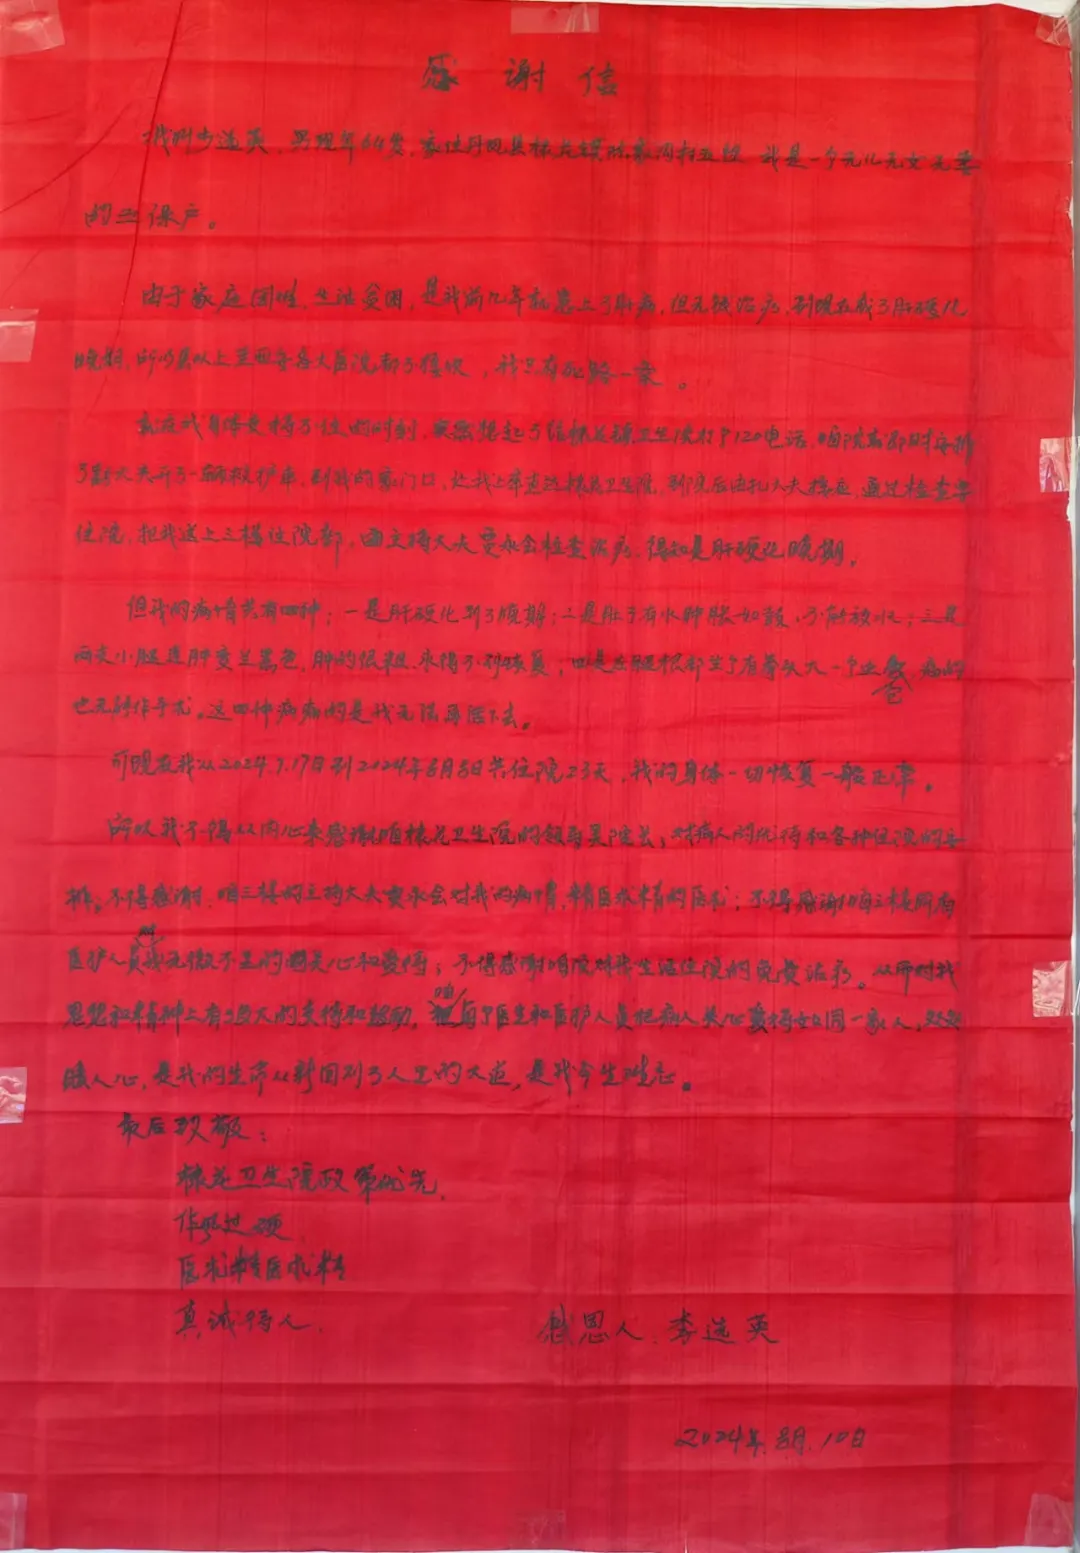 感谢信
我叫李选英，男现年64岁，家住丹凤县棣花镇陈家沟村五组 我是一个无儿无女无妻
的五保户。
由于家庭困难，生活贫困，是我前几年就患上了肝病，但无钱治疗，到现在成了肝硬化
晚期，所以县以上至西安各大医院都了拒收，我只有死路一条。
就在我身体支持不住的时刻，突然想起了给棣花镇卫生院打了120电话，咱院立即时安排
了大夫开了一辆救护车，到我的家门口，让我上车直达棣花卫生院，到院后由孔大夫接应，通过检查要
住院，把我送上三楼住院部，由主持大夫贾永会检查治疗，得知是肝硬化晚期。
但我的病情共有四种：一是肝硬化到了晚期；二是肚子有水肿胀如鼓，不能放水；三是
两支小腿连肿变兰黑色，肿的很粗，永得不到恢复；四是左腿根部生了有拳头大一个血包 病的
也无能作手术。这四种病痛的是我无法再活下去。
可现在我从2024.7.17日到2024年8月8日共住院23天，我的身体一切恢复一般正常。
所以我不得从内心来感谢咱棣花卫生院的领导吴院长，对病人的优待和各种住院的安
排。不得感谢，咱三楼的主持大夫贾永会对我的病情，精医术精的医术；不得感谢咱三楼所有
医护人员对我无微不至的关心和爱待；不得感谢咱院对我生活住院的免费治疗。从而对我
思想和精神上有了巨大的支持和鼓动，咱每个医生和医护人员把病人关心爱待如同一家人，处处
暖人心，是我的生命从新回到了人生的大道，是我今生难忘。
最后致敬：
棣花卫生院政策优先，
作风过硬，
医术精医术精
真诚待人，
感恩人、李选英
2024年8月10日